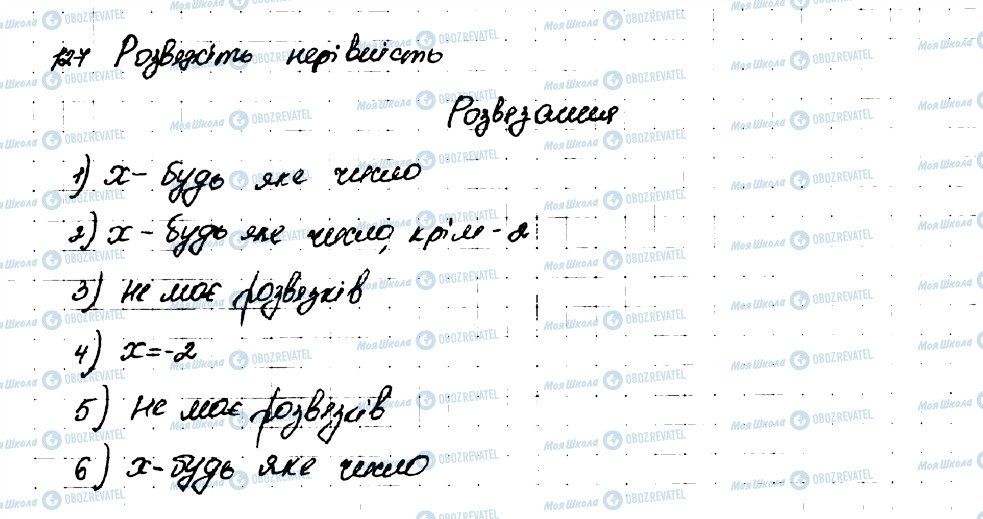 127 Розвяжіть нерівність
Розвязання
1) x - будь яке число
2) x - будь, яке число, крім - 2
3) не має розвязків
4) x = -2
5) не має розвязків
6) x - будь яке число